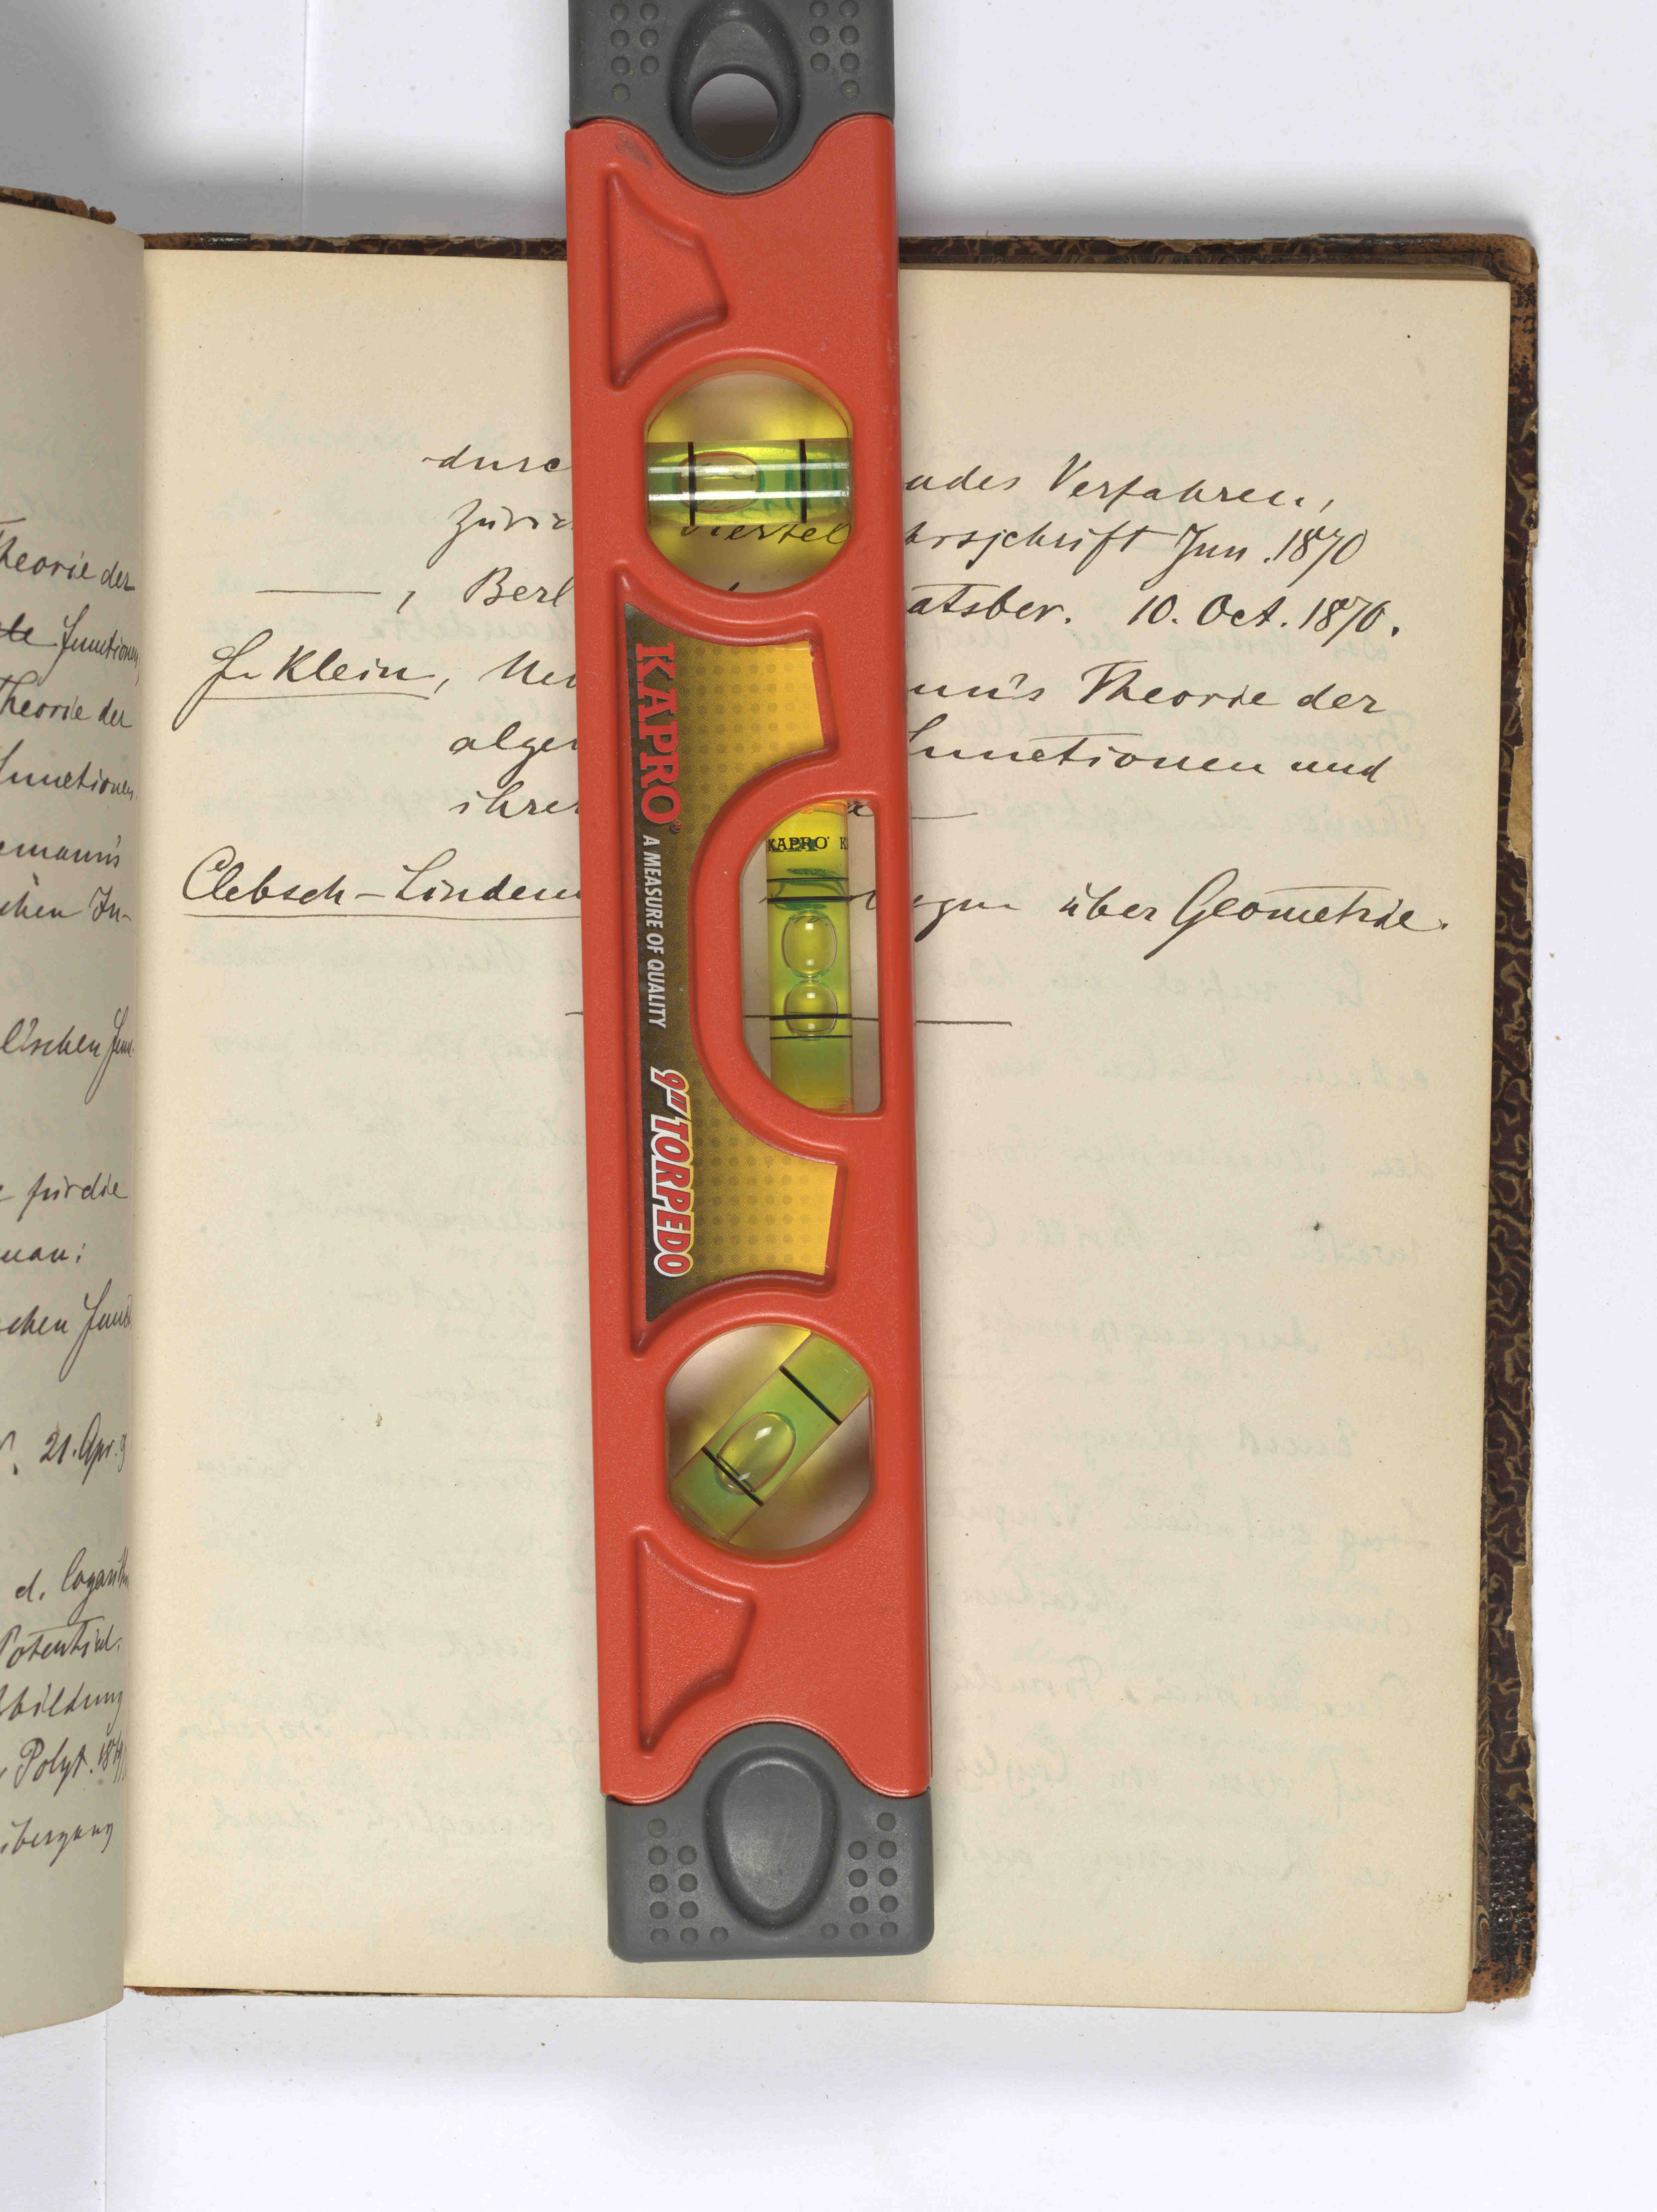 heorie der
te functionen
Theorie der
functionen.
emann's
chen In-
l'schen
für die
man:
schen
21. Apr.
d.
Potential.
bbildung
Polyt.
übergang
durc ndes Verfahren,
Züric viertel hrsschrift Jun. 1870
—, Berl atsber. 10. Oct. 1870.
F. Klein, nn's Theorie der
alge functionen und
ihrer
Clebsch-Lindem über Geometrie.
KAPRO® A MEASURE OF QUALITY 9" TORPEDO
KAPRO® K